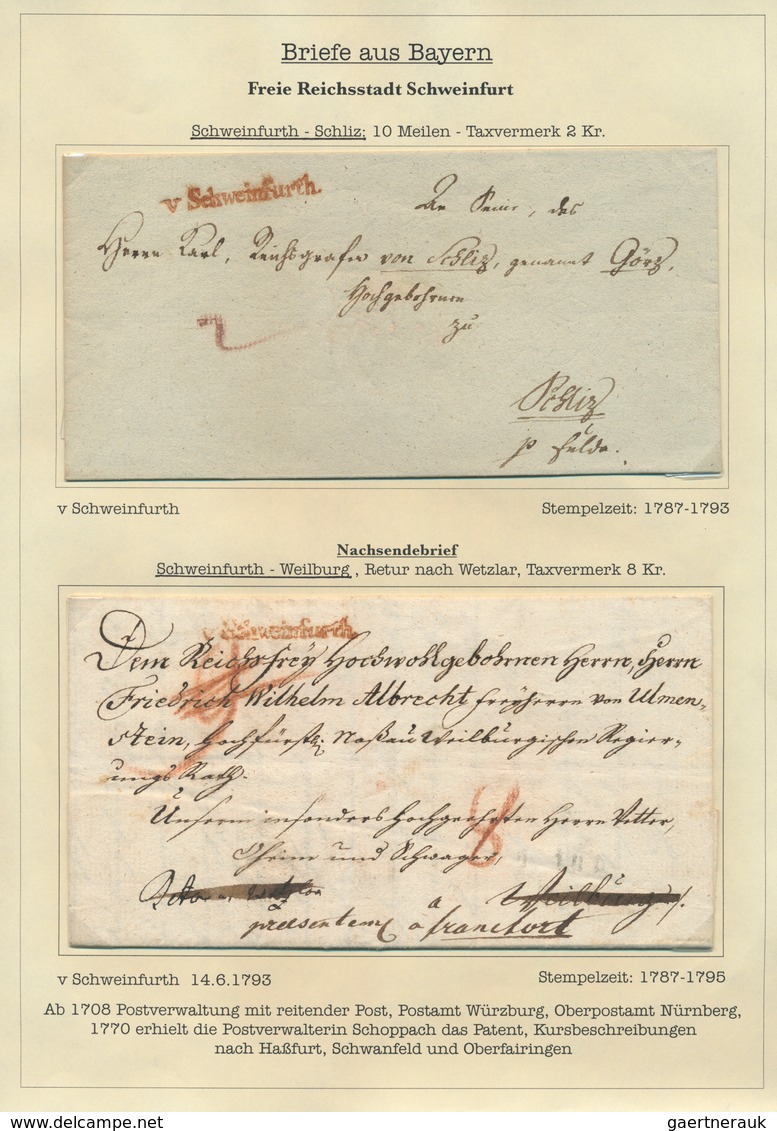 Briefe aus Bayern
Freie Reichsstadt Schweinfurt
Schweinfurth - Schliz; 10 Meilen - Taxvermerk 2 Kr.
v Schweinfurth.
des
Herrn Karl, Reichsgrafen von Schliz, genannt Görz,
Hochgebohrnen
zu
Schliz
p Fulda.
v Schweinfurth
Stempelzeit: 1787-1793
Nachsendebrief
Schweinfurth - Weilburg , Retur nach Wetzlar, Taxvermerk 8 Kr.
v Schweinfurth.
Dem Reichsfrey Hochwohlgebohrnen Herrn, Herrn
Friedrich Wilhelm Albrecht Freyherrn von Ulmen-
stein, Hochfürstl. Naßau Weilburgischen Regier-
ungs Rath.
8
Unserm insonders hochgeehrten Herrn Vetter,
Oheim und Schwager,
a Weilburg
presentem a francfort
v Schweinfurth 14.6.1793
Stempelzeit: 1787-1795
Ab 1708 Postverwaltung mit reitender Post, Postamt Würzburg, Oberpostamt Nürnberg,
1770 erhielt die Postverwalterin Schoppach das Patent, Kursbeschreibungen
nach Haßfurt, Schwanfeld und Oberfairingen
gaertnerauk